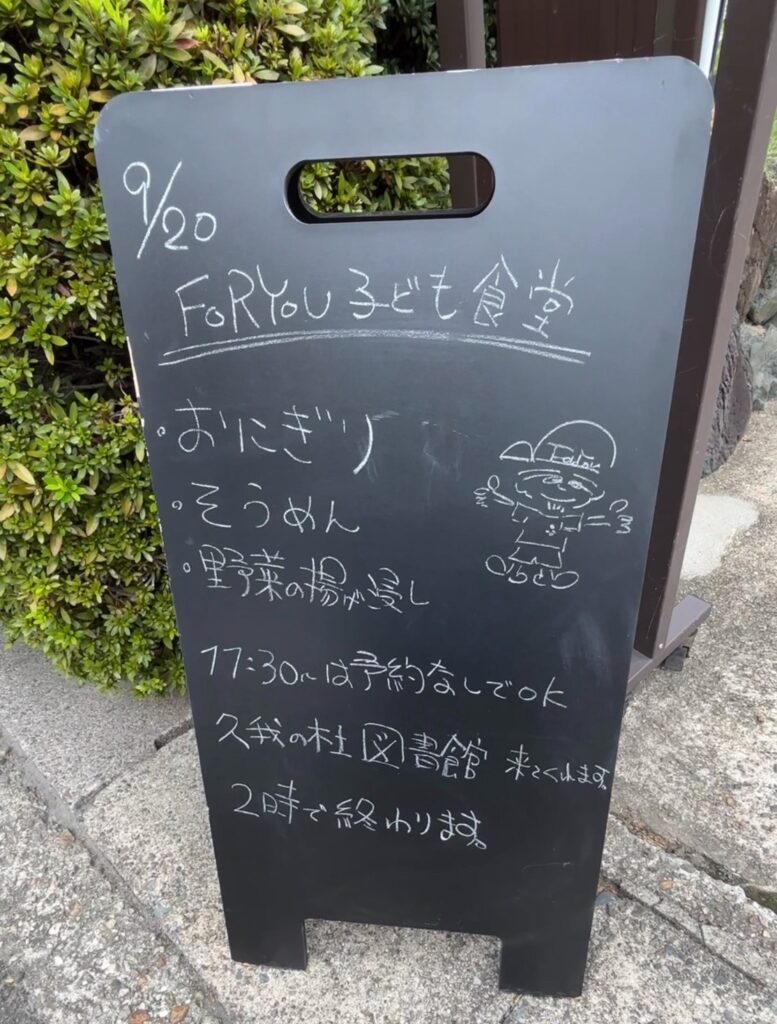 9/20
FoRYou 子ども食堂
・おにぎり
・そうめん
・野菜の揚げ浸し
ForYou
11:30〜は予約なしでOK
久我の杜図書館 来てくれます。
2時で終わります。